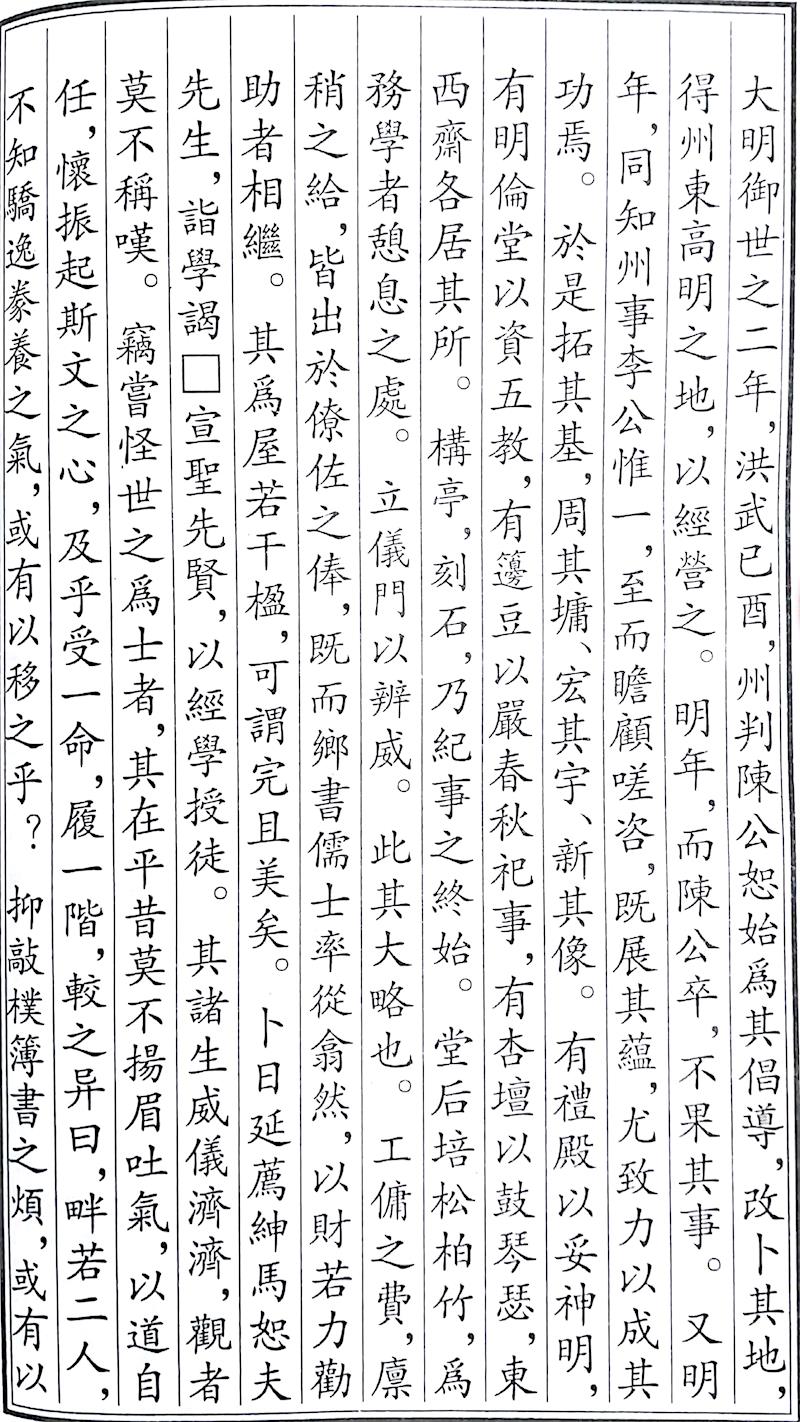 大明御世之二年，洪武已酉，州判陳公恕始爲其倡導，改卜其地，
得州東高明之地，以經營之。明年，而陳公卒，不果其事。又明
年，同知州事李公惟一，至而瞻顧嗟咨，既展其蘊，尤致力以成其
功焉。於是拓其基，周其墉、宏其宇、新其像。有禮殿以妥神明，
有明倫堂以資五教，有籩豆以嚴春秋祀事，有杏壇以鼓琴瑟，東
西齋各居其所。構亭，刻石，乃紀事之終始。堂后培松柏竹，爲
務學者憩息之處。立儀門以辨威。此其大略也。工傭之費，廪
稍之給，皆出於僚佐之俸，既而鄉書儒士率從翕然，以財若力勸
助者相繼。其爲屋若干楹，可謂完且美矣。卜日延薦紳馬恕夫
先生，詣學謁□宣聖先賢，以經學授徒。其諸生威儀濟濟，觀者
莫不稱嘆。竊嘗怪世之爲士者，其在平昔莫不揚眉吐氣，以道自
任，懷振起斯文之心，及乎受一命，履一階，較之异曰，畔若二人，
不知驕逸豢養之氣，或有以移之乎？抑敲樸簿書之煩，或有以